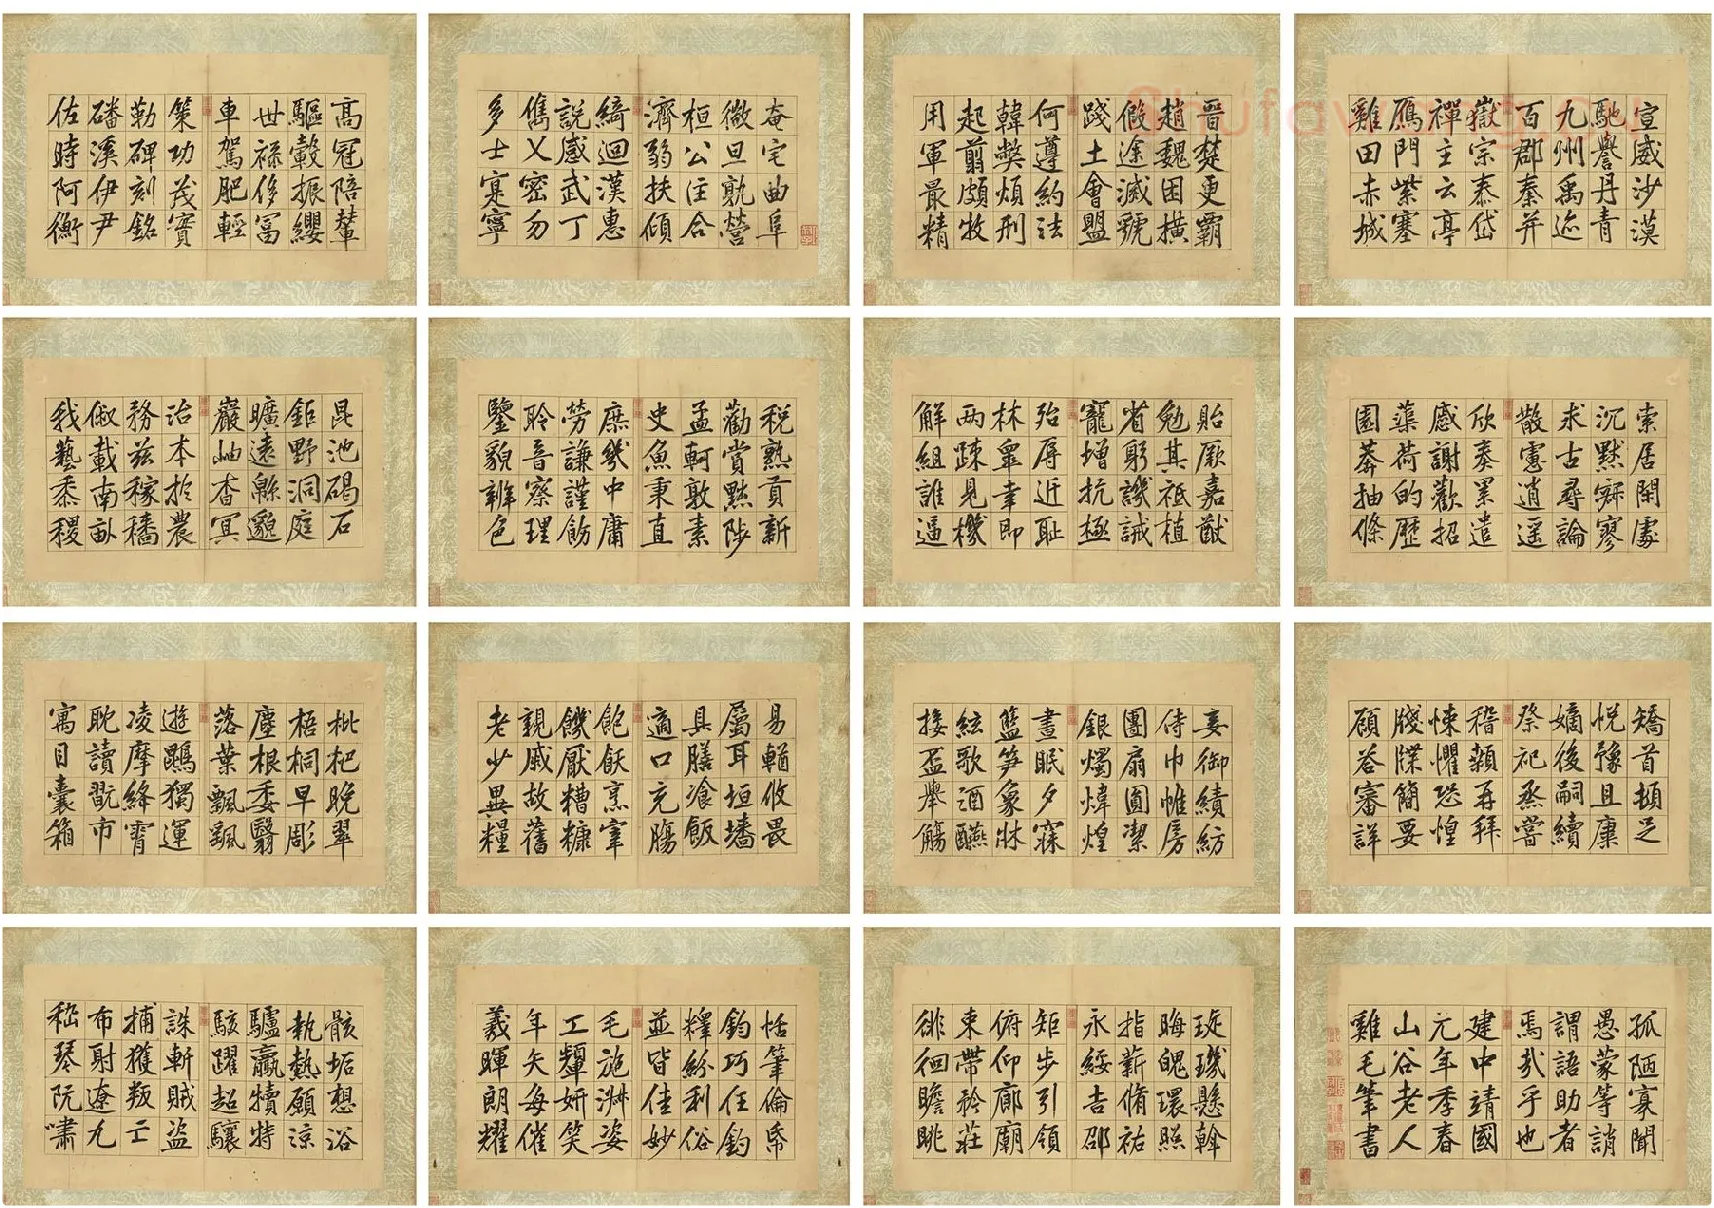 高冠陪輦
驅轂振纓
世祿侈富
車駕肥輕
策功茂實
勒碑刻銘
磻溪伊尹
佐時阿衡
奄宅曲阜
微旦孰營
桓公匡合
濟弱扶傾
綺迴漢惠
說感武丁
儁乂密勿
多士寔寧
晉楚更霸
趙魏困橫
假途滅虢
踐土會盟
何遵約法
韓弊煩刑
起翦頗牧
用軍最精
宣威沙漠
馳譽丹青
九州禹迹
百郡秦并
嶽宗泰岱
禪主云亭
鴈門紫塞
雞田赤城
昆池碣石
鉅野洞庭
曠遠緜邈
巖岫杳冥
治本於農
務茲稼穡
俶載南畝
我藝黍稷
稅熟貢新
勸賞黜陟
孟軻敦素
史魚秉直
庶幾中庸
勞謙謹勅
聆音察理
鑒貌辨色
貽厥嘉猷
勉其祗植
省躬譏誡
寵增抗極
殆辱近恥
林皋幸即
兩疎見機
解組誰逼
索居閑處
沉默寂寥
求古尋論
散慮逍遥
欣奏累遣
慼謝歡招
蕖荷的歷
園莽抽條
枇杷晚翠
梧桐早彫
塵根委翳
落葉飄飄
遊鵾獨運
凌摩絳霄
耽讀翫市
寓目囊箱
易輶攸畏
屬耳垣墻
具膳飡飯
適口充腸
飽飫烹宰
饑厭糟糠
親戚故舊
老少異糧
妾御績紡
侍巾帷房
團扇圓潔
銀燭煒煌
晝眠夕寐
籃笋象牀
絃歌酒醼
接盃舉觴
矯首頓足
悅豫且康
嫡後嗣續
祭祀蒸嘗
稽顙再拜
悚懼恐惶
牋牒簡要
顧答審詳
骸垢想浴
執熱願涼
驢驘犢特
駭躍超驤
誅斬賊盜
捕獲叛亡
布射遼丸
嵇琴阮嘯
恬筆倫帋
鈞巧任釣
釋紛利俗
並皆佳妙
毛施淑姿
工顰妍笑
年矢每催
羲暉朗耀
琁璣懸斡
晦魄環照
指薪脩祐
永綏吉邵
矩步引領
俯仰廊廟
束帶矜莊
徘徊瞻眺
孤陋寡聞
愚蒙等誚
謂語助者
焉哉乎也
建中靖國
元年季春
山谷老人
雞毛筆書